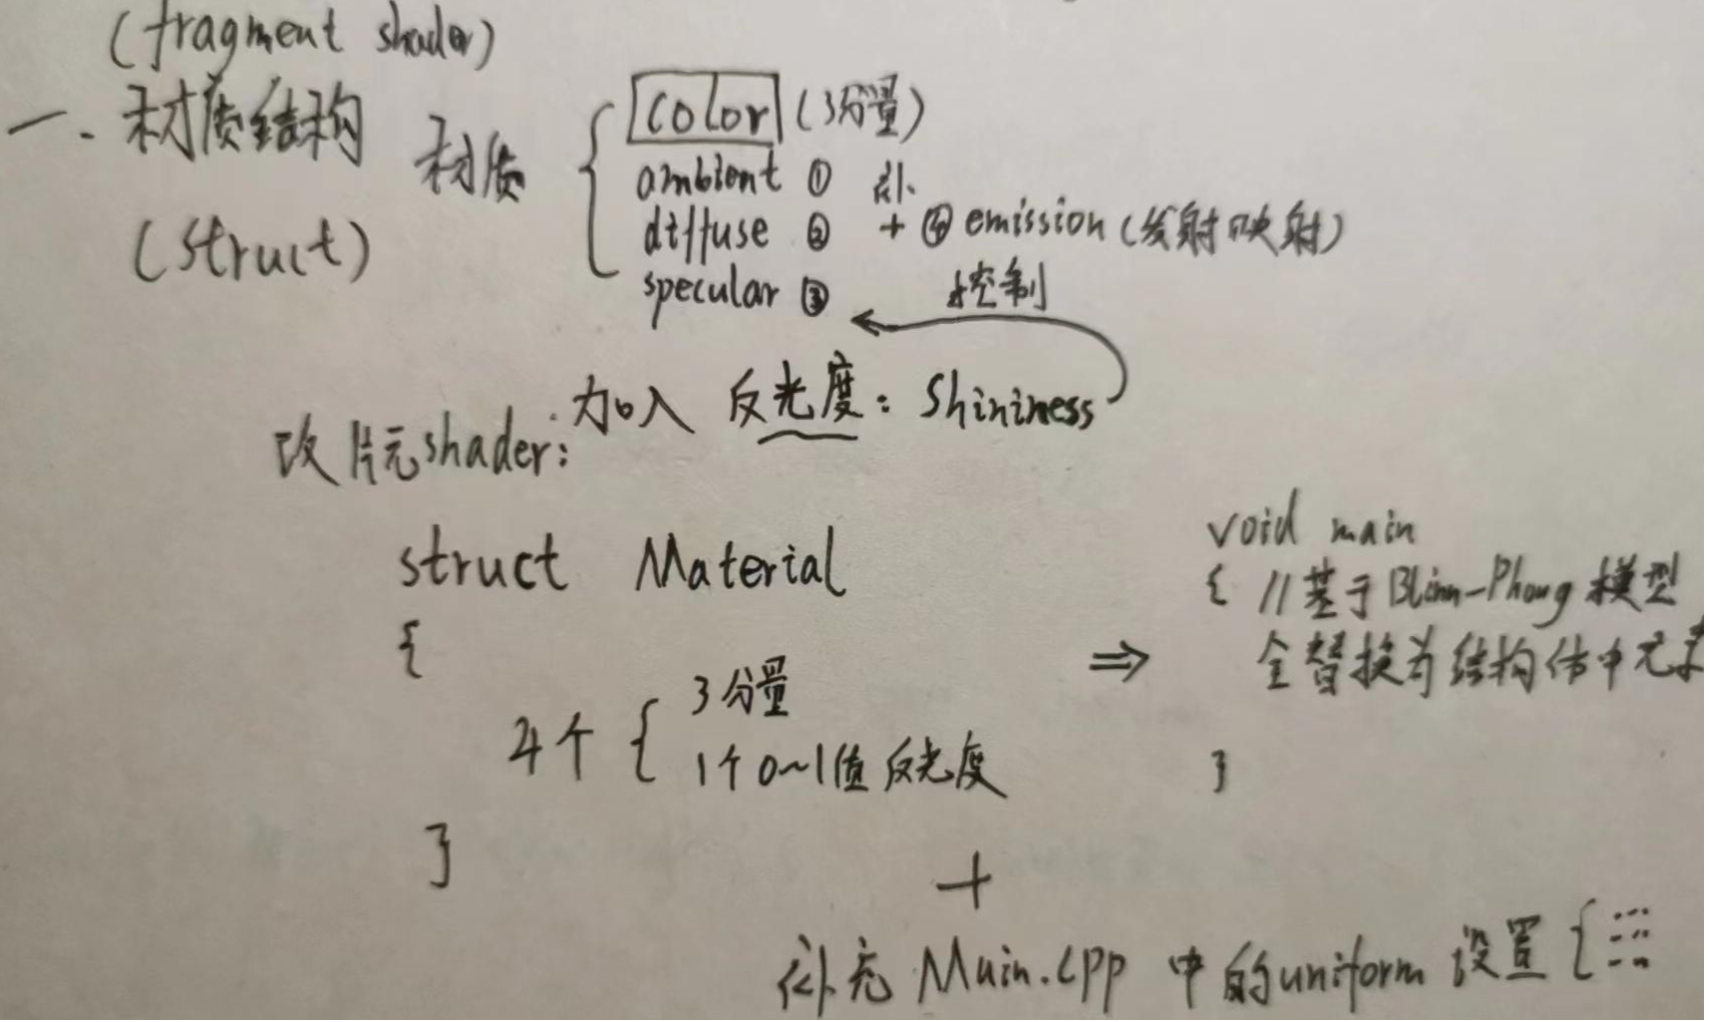 (fragment shader)
一. 材质结构
(struct)
材质 {
color (3分量)
ambient ① 补
diffuse ② + ④ emission (发射映射)
specular ③
控制
加入 反光度: Shininess
改片元shader:
struct Material
{
4个 { 3分量
1个0~1值 反光度
}
⇒
void main
{ //基于Blinn-Phong模型
全替换为结构体中元素
}
+
补充 Main.cpp 中的uniform 设置 {